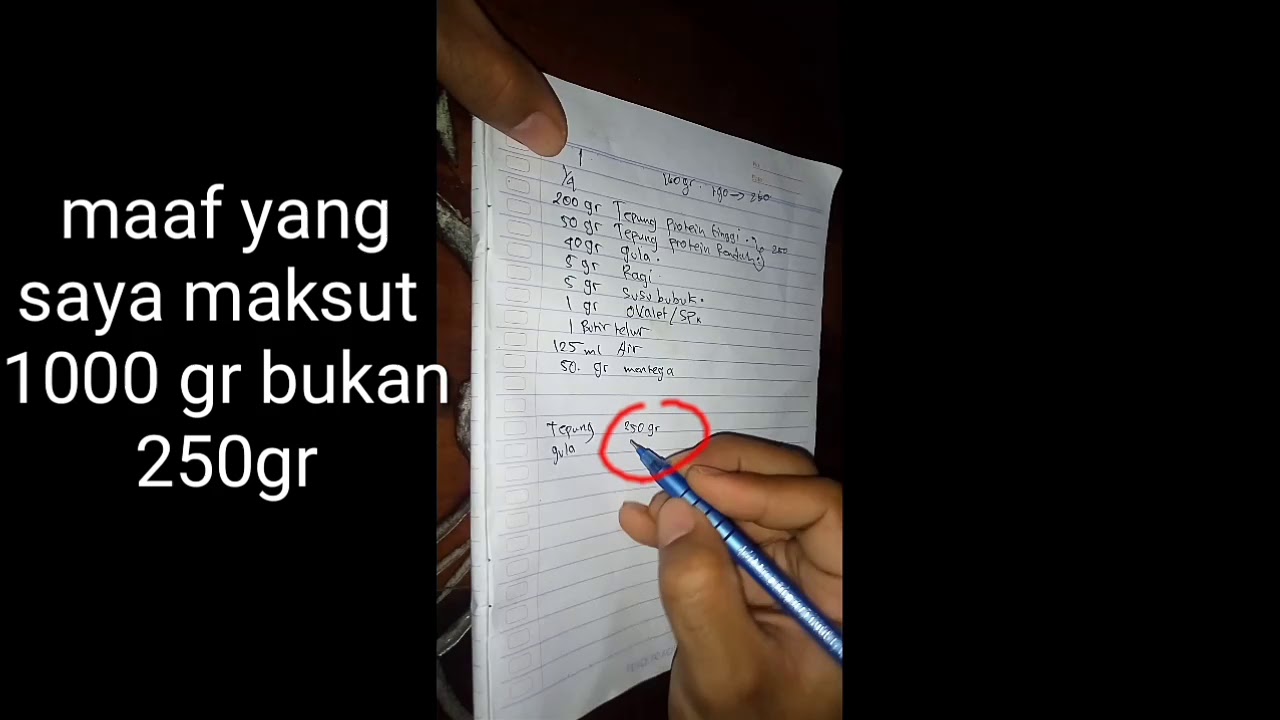 maaf yang
saya maksut
1000 gr bukan
250gr
1
1/4
200 gr Tepung protein tinggi.
50 gr Tepung protein Rendah
250
40gr gula.
5 gr Ragi.
5 gr susu bubuk.
1 gr Ovalet/SP
1 Butir telur
125 ml Air
50. gr mentega
Tepung 250 gr
gula